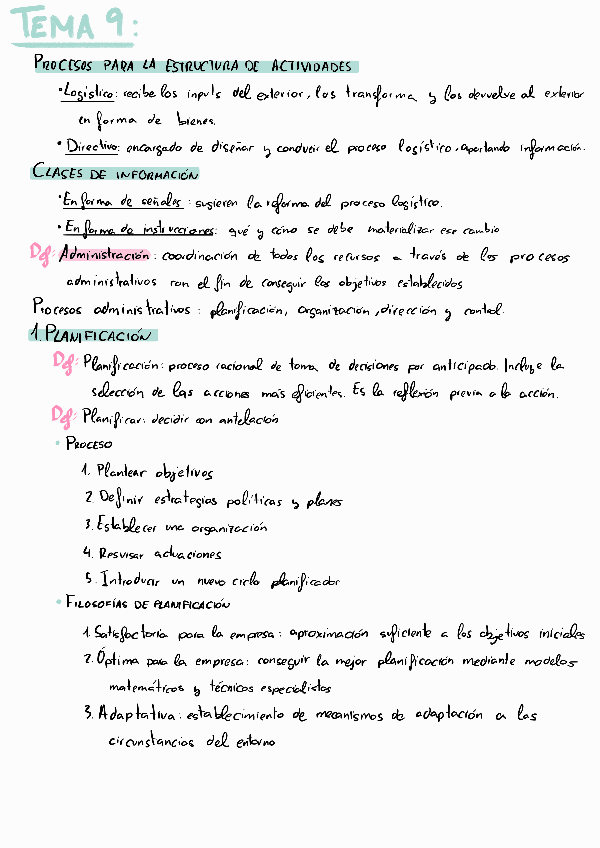 TEMA 9:
PROCESOS PARA LA ESTRUCTURA DE ACTIVIDADES
• Logístico: recibe los inputs del exterior, los transforma y los devuelve al exterior
en forma de bienes.
• Directivo: encargado de diseñar y conducir el proceso logístico, aportando información.
CLASES DE INFORMACIÓN
• En forma de señales: sugieren la reforma del proceso logístico.
• En forma de instrucciones: qué y cómo se debe materializar ese cambio
Def: Administración: coordinación de todos los recursos a través de los procesos
administrativos con el fin de conseguir los objetivos establecidos
Procesos administrativos: planificación, organización, dirección y control.
1. PLANIFICACIÓN
Def: Planificación: proceso racional de toma de decisiones por anticipado. Incluye la
selección de las acciones más eficientes. Es la reflexión previa a la acción.
Def: Planificar: decidir con antelación
• PROCESO
1. Plantear objetivos
2. Definir estrategias políticas y planes
3. Establecer una organización
4. Resvisar actuaciones
5. Introducir un nuevo ciclo planificador
• FILOSOFÍAS DE PLANIFICACIÓN
1. Satisfactoria para la empresa: aproximación suficiente a los objetivos iniciales
2. Óptima para la empresa: conseguir la mejor planificación mediante modelos
matemáticos y técnicos especialistas
3. Adaptativa: establecimiento de mecanismos de adaptación a las
circunstancias del entorno